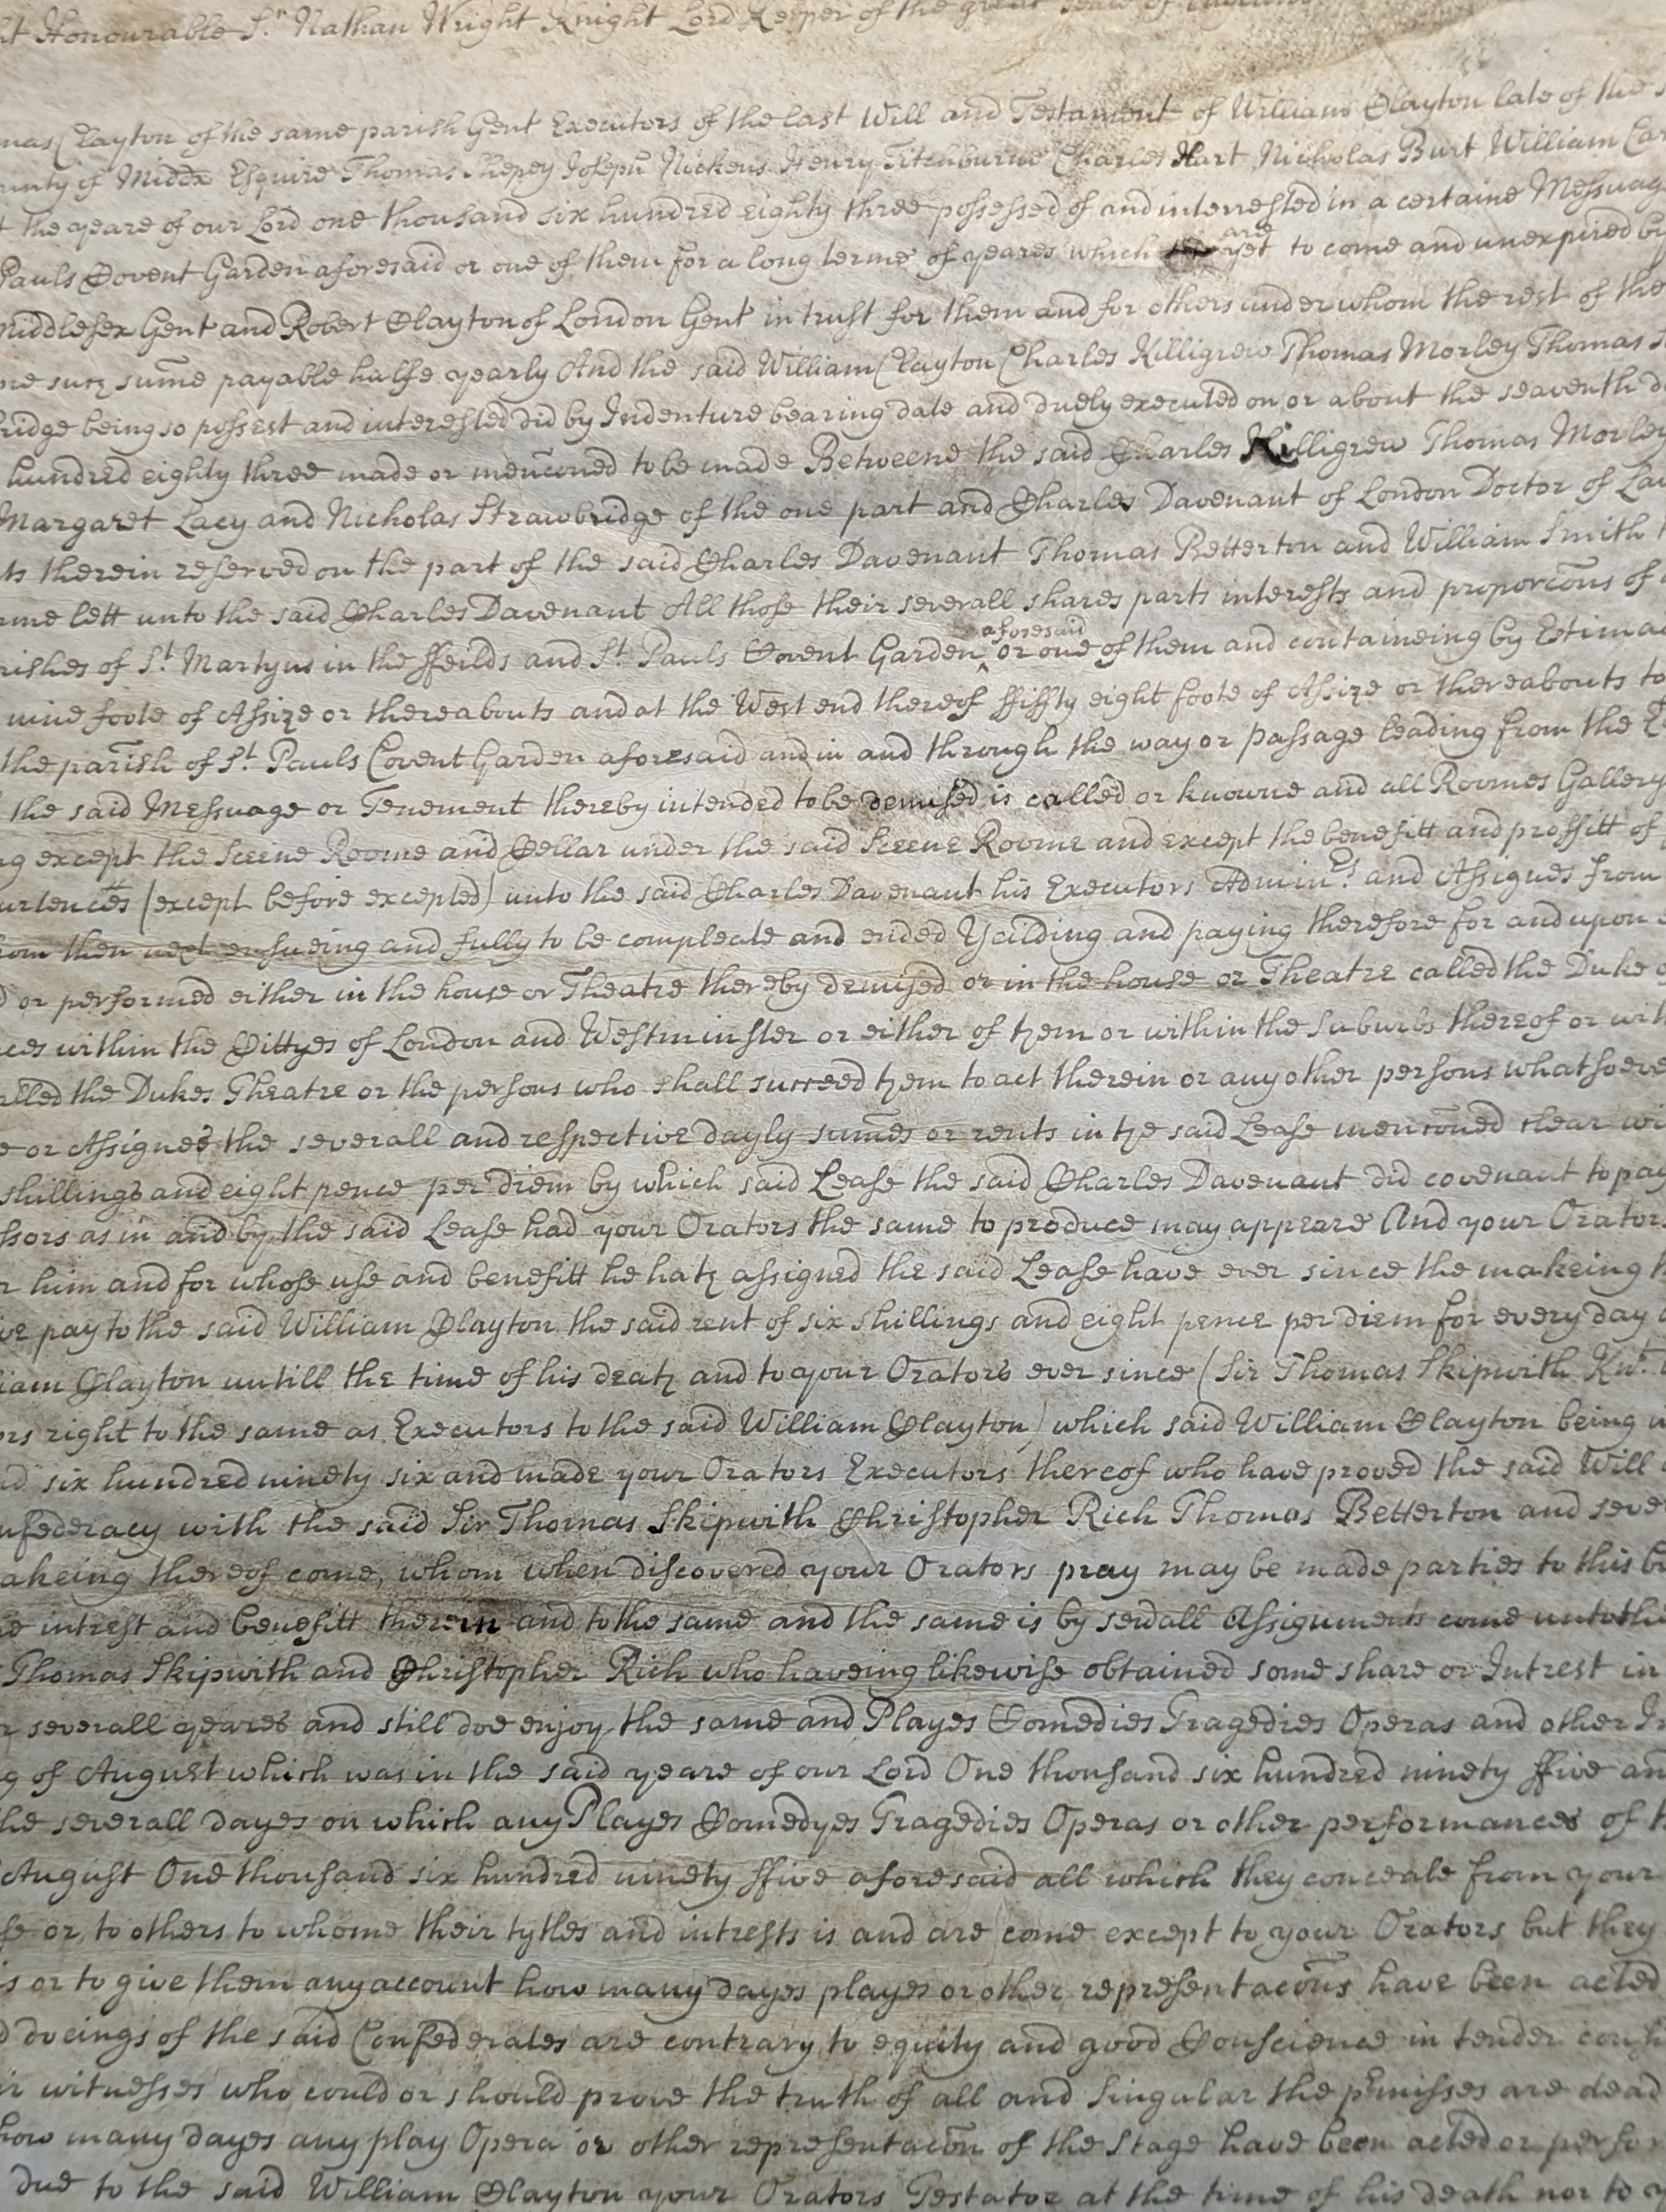 ht Honourable Sr. Nathan Wright Knight Lord Keeper of the great Seale of England
mas Clayton of the same parish Gent Executors of the last Will and Testament of William Clayton late of the s
unty of Middx Esquire Thomas Shepey Joseph Nickens Henry Titchburne Charles Hart Nicholas Burt William Car
t the yeare of our Lord one thousand six hundred eighty three possessed of and interrested in a certaine Messuag
Pauls Covent Garden aforesaid or one of them for a long terme of yeares which are yet to come and unexpired by
Middlesex Gent and Robert Clayton of London Gent in trust for them and for others under whom the rest of the
me such sume payable halfe yearly And the said William Clayton Charles Killigrew Thomas Morley Thomas S
ridge being so possest and interested did by Indenture bearing date and duely executed on or about the seaventh d
hundred eighty three made or menconed to be made Betweene the said Charles Killigrew Thomas Morley
Margaret Lacy and Nicholas Strawbridge of the one part and Charles Davenant of London Doctor of Law
ts therein reserved on the part of the said Charles Davenant Thomas Betterton and William Smith
rme lett unto the said Charles Davenant All those their severall shares parts interests and proporcons of
rishes of St. Martyns in the ffeilds and St. Pauls Covent Garden aforesaid or one of them and containeing by Estimac
nine foote of Assize or thereabouts and at the West end thereof ffiffty eight foote of Assize or thereabouts to
the parish of St. Pauls Covent Garden aforesaid and in and through the way or passage leading from the
the said Messuage or Tenement thereby intended to be demised is called or knowne and all Roomes Gallery
ng except the Sceine Roome and Cellar under the said Sceene Roome and except the benefitt and proffitt of
urtences (except before excepted) unto the said Charles Davenant his Executors Admin.rs and Assignes from
from then next ensueing and fully to be compleate and ended Yeilding and paying therefore for and upon
d or performed either in the house or Theatre thereby demised or in the house or Theatre called the Duke
ces within the Cittyes of London and Westminster or either of them or within the Suburbs thereof or with
alled the Dukes Theatre or the persons who shall succeed them to act therein or any other persons whatsoeve
e or Assignes the severall and respective dayly sumes or rents in the said Lease menconed clear wi
shillings and eight pence per diem by which said Lease the said Charles Davenant did covenant to pay
ssors as in and by the said Lease had your Orators the same to produce may appeare And your Orators
r him and for whose use and benefitt he hath assigned the said Lease have ever since the makeing
ve pay to the said William Clayton the said rent of six shillings and eight pence per diem for every day
liam Clayton untill the time of his death and to your Orators ever since (Sir Thomas Skipwith Knt.
ors right to the same as Executors to the said William Clayton) which said William Clayton being
nd six hundred ninety six and made your Orators Executors thereof who have proved the said Will
nfederacy with the said Sir Thomas Skipwith Christopher Rich Thomas Betterton and seve
akeing thereof come, whom when discovered your Orators pray may be made parties to this
e intrest and benefitt therein and to the same and the same is by serall Assignments come unto the
Thomas Skipwith and Christopher Rich who haveing likewise obtained some share or Intrest in
r severall yeares and still doe enjoy the same and Playes Comedies Tragedies Operas and other
g of August which was in the said yeare of our Lord One thousand six hundred ninety ffive an
the severall dayes on which any Playes Comedyes Tragedies Operas or other performances of
August One thousand six hundred ninety ffive aforesaid all which they conceale from your
se or to others to whome their tytles and intrests is and are come except to your Orators but they
s or to give them any account how many dayes playes or other representacons have been acted
d doeings of the said Confederates are contrary to equity and good Conscience in tender cons
ir witnesses who could or should prove the truth of all and Singular the pr'misses are dead
how many dayes any play Opera or other representacon of the Stage have been acted or perfor
due to the said William Clayton your Orators Testator at the time of his death nor to